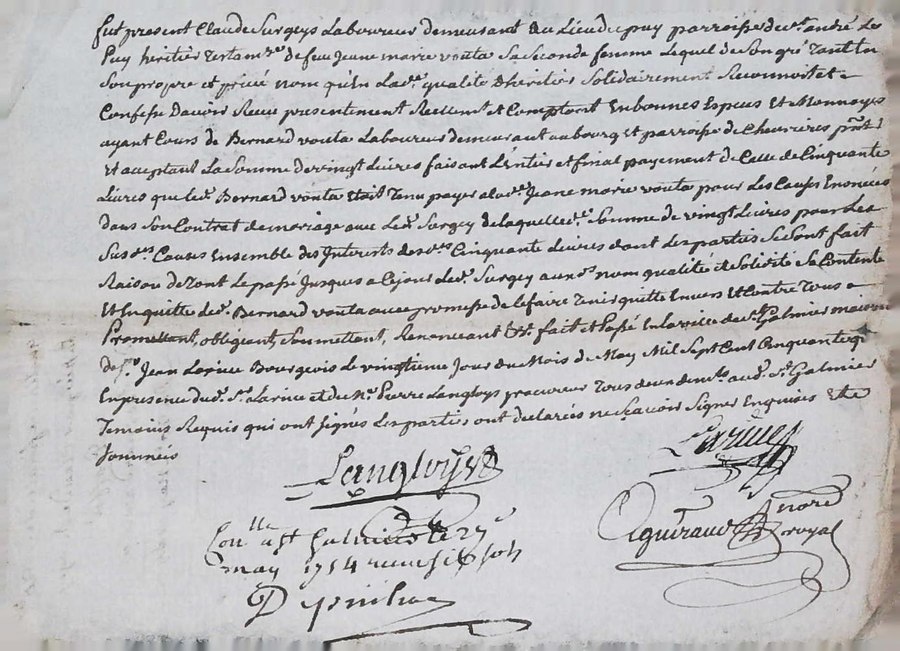 fut present Claude Surgeys Laboureur demeurant au Lieu du puy parroisse de st andré Le
Puy heritier Testam.re de feu Jeane marie vouta Sa Seconde femme Lequel de Son gré Tant En
Son propre et privé nom qu'en Lad.e qualité d'heritier Solidairement Reconnoit et
Confesse Davoir Reçu presentement Reellem.t et Comptant En bonnes Especes Et Monnoyes
ayant Cours de Bernard vouta Laboureur demeurant au bourg et parroisse de Chevrieres p.nt
Et acceptant La Somme de vingt Livres faisant L'entier et final payement de Celle de Cinquante
Livres que led. Bernard vouta Etoit Tenu payer a lad.e Jeane marie vouta pour Les Causes Enoncées
dans Son Contrat de mariage avec Led. Surgey de laquelle d.e Somme de vingt Livres pour Les
Susd.es Causes Ensemble des Interets desd.es Cinquante Livres dont Les parties Se Sont fait
Raison de Tout Le passé Jusques a Cejour Led. Surgey aux d.s nom qualité et Solidité Se Contente
Et En quitte led. Bernard vouta avec promesse de le faire Tenir quitte Envers Et Contre Tous
Promettant, obligeant, Soumettant, Renonceant &.a fait et Passé En la ville de St Galmier maison
de S.r Jean Larive Bourgeois Le vingtieme Jour du Mois de May Mil Sept Cent Cinquante q
En presence dud. S.r Larive et de M.e Pierre Langloys procureur Tous deux dem.ts aud. St Galmier
Temoins Requis qui ont signés Les parties ont declarées ne Sçavoir Signer Enquises Et
Sommées
Langloys
Larive
Con.lle a St Galmier Le 27e
may 1754 reçu
aguiraud Nore
royal